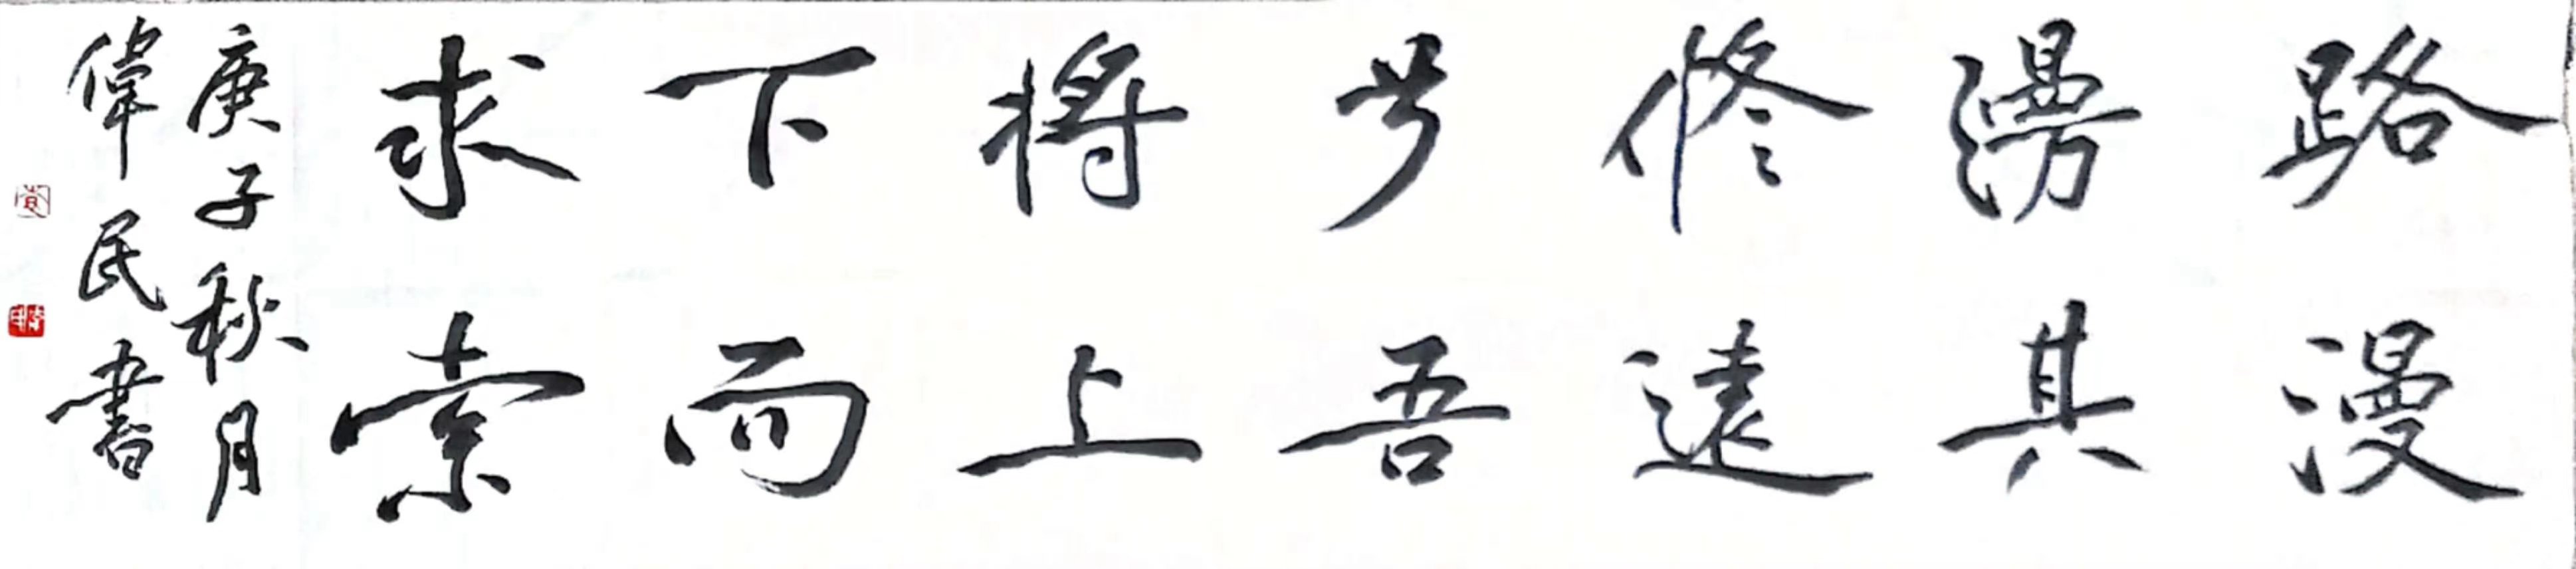 路漫
漫其
修遠
兮吾
將上
下而
求索
庚子秋月
偉民書